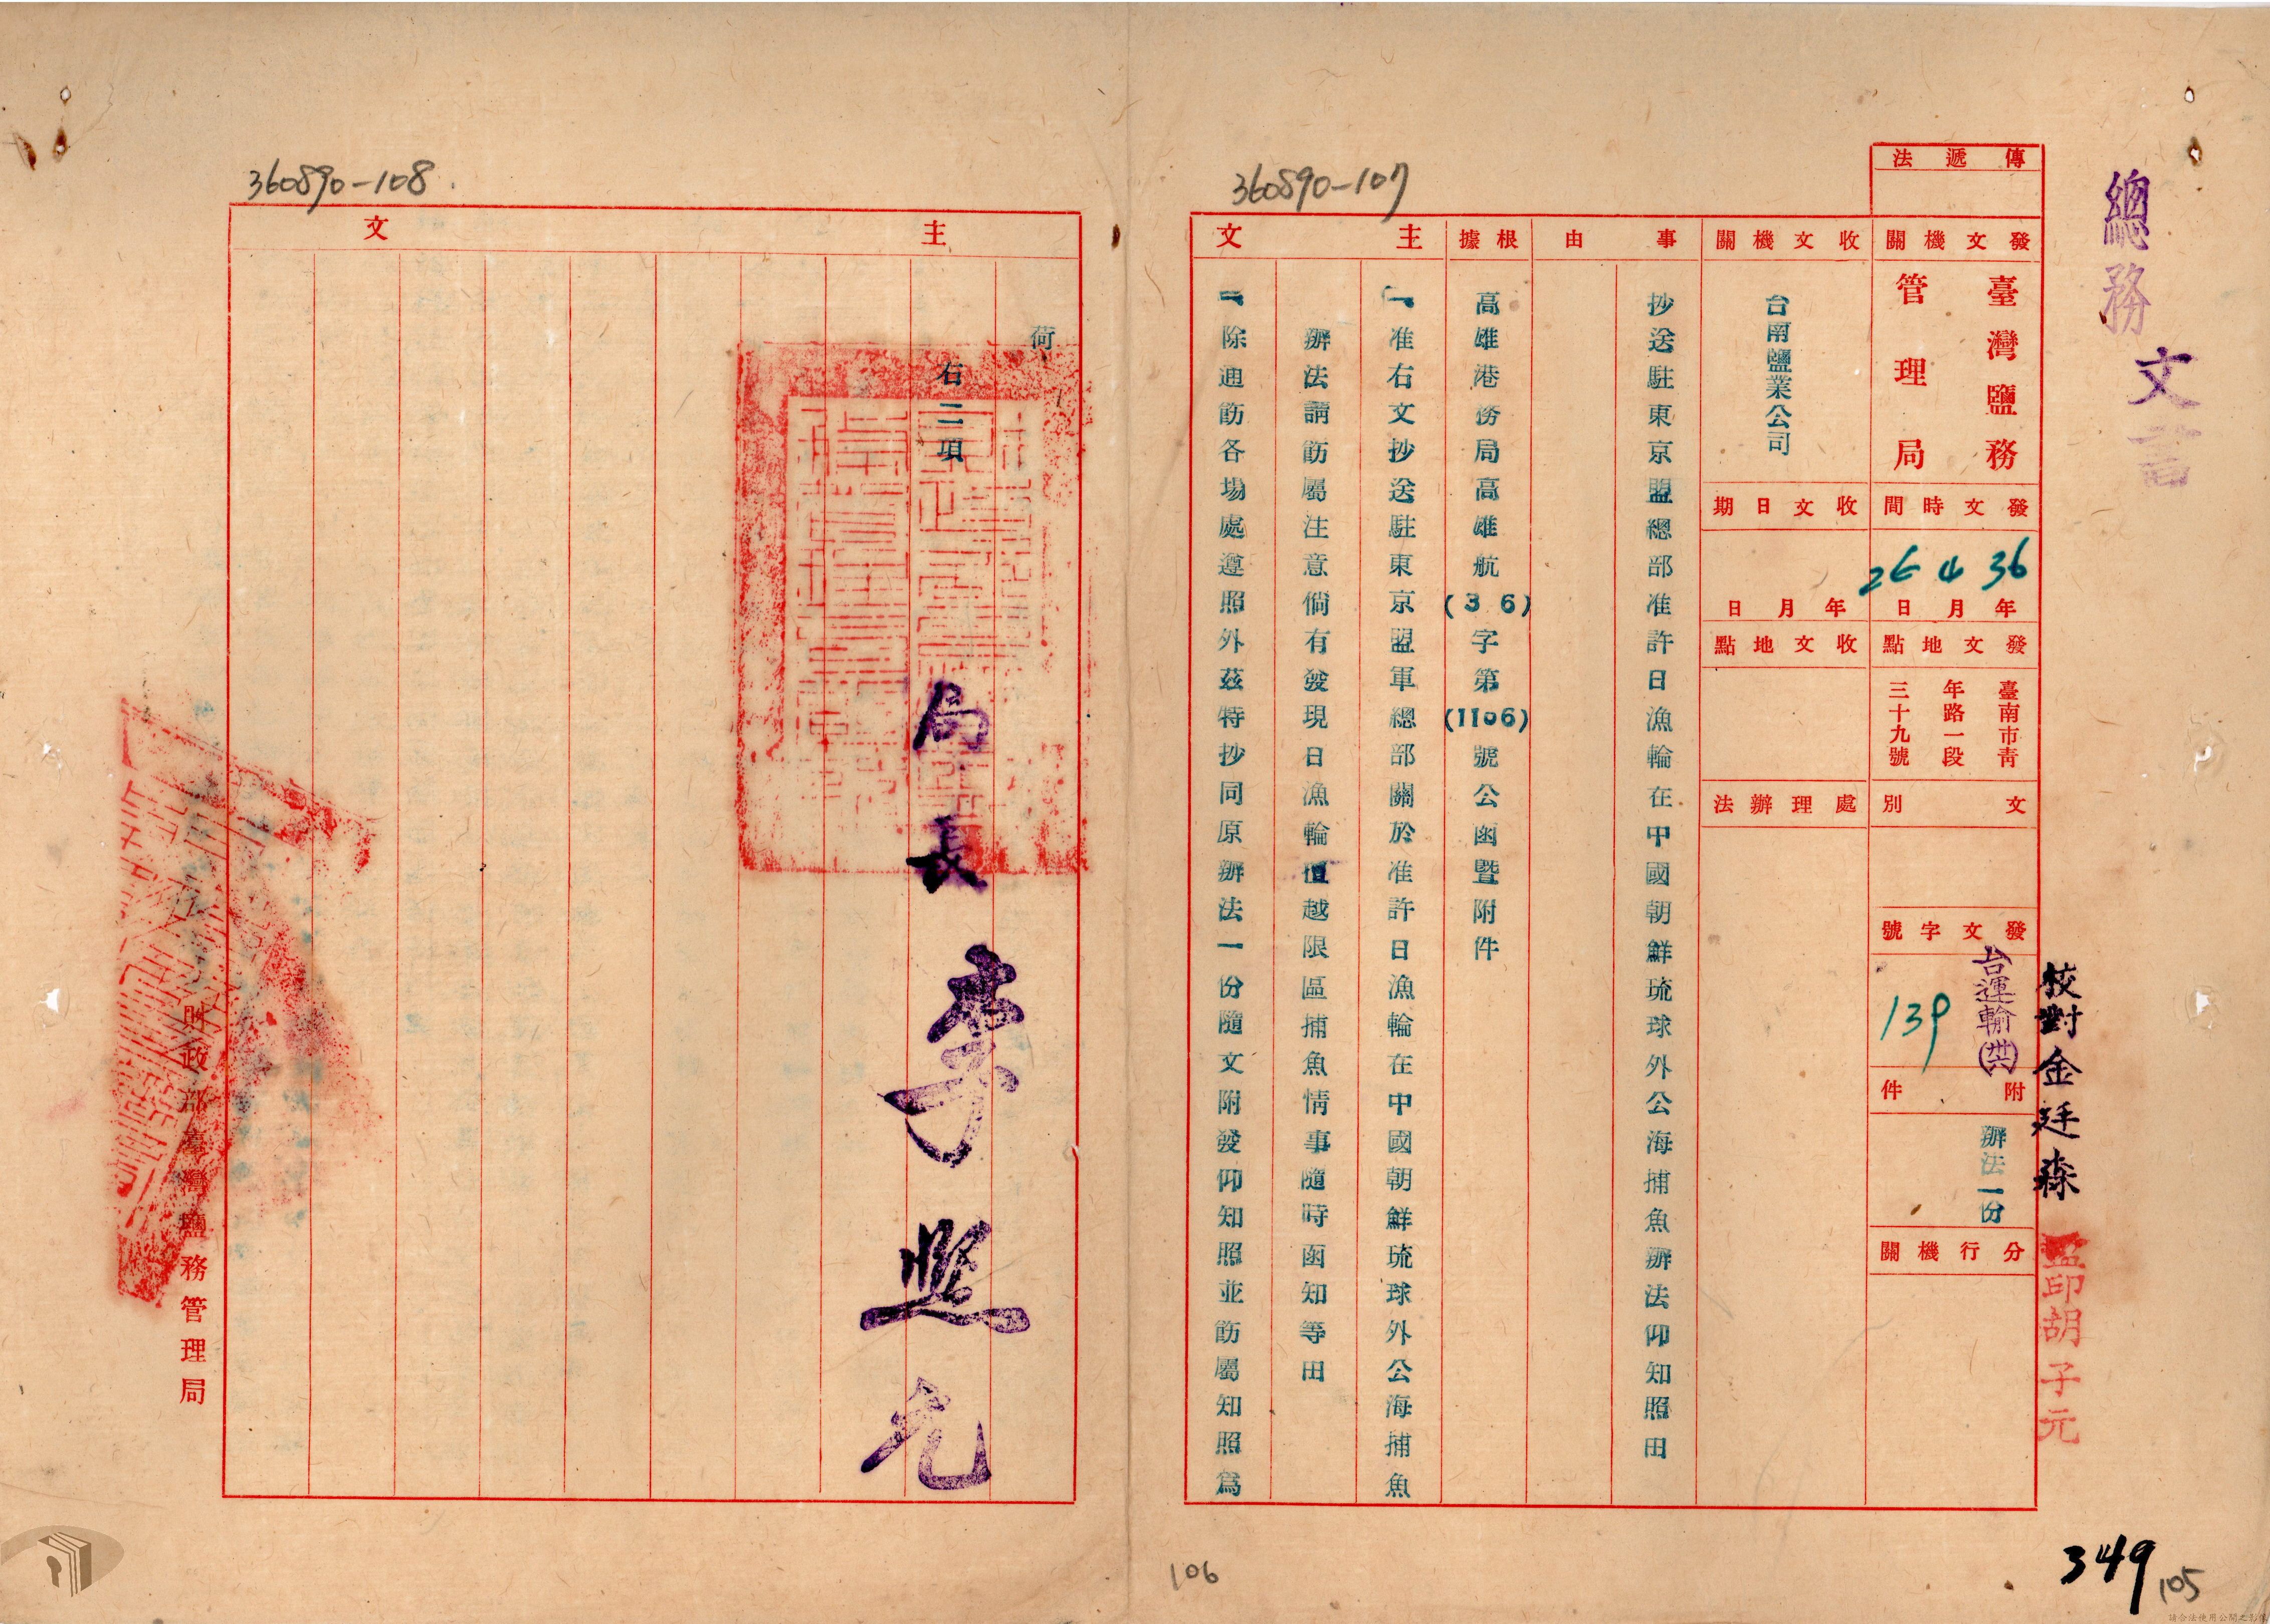 總務
文書
傳遞法
發文機關
臺灣鹽務
管理局
發文時間
36 4 26
年月日
發文地點
臺南市青
年路一段
三十九號
文別
發文字號
台運輸(卅六)
139
附件
辦法一份
分行機關
校對金廷森
監印胡子元
收文機關
台南鹽業公司
收文日期
年月日
收文地點
處理辦法
事由
抄送駐東京盟總部准許日漁輪在中國朝鮮琉球外公海捕魚辦法仰知照由
根據
高雄港務局高雄航(36)字第(1106)號公函暨附件
主文
一准右文抄送駐東京盟軍總部關於准許日漁輪在中國朝鮮琉球外公海捕魚
辦法請飭屬注意倘有發現日漁輪擅越限區捕魚情事隨時函知等由
二除通飭各場處遵照外茲特抄同原辦法一份隨文附發仰知照並飭屬知照為
360890-107
主文
荷
右二項
局長李照允
財政部臺灣鹽務管理局
360890-108
106
349
105
請合法使用公開之影像